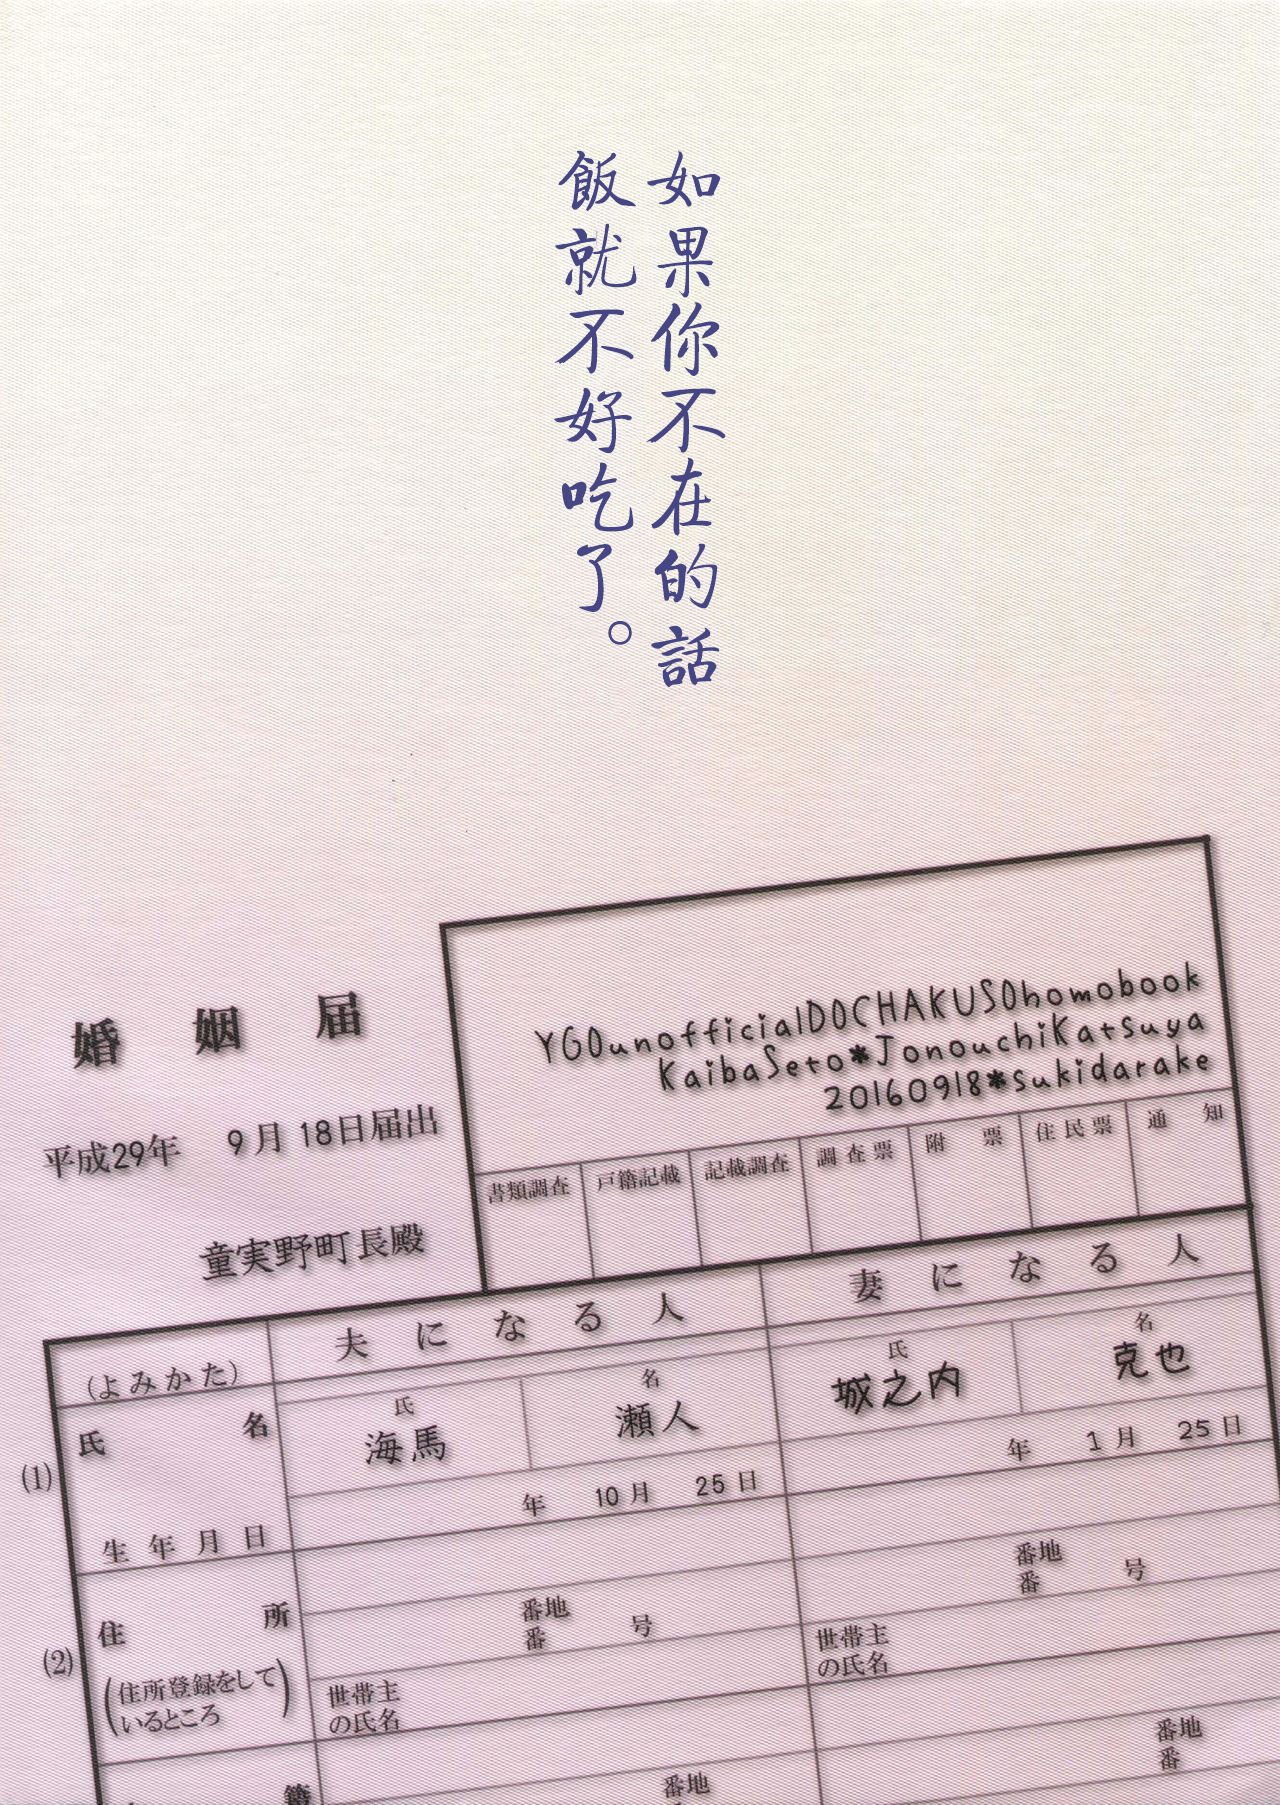 如果你不在的話
飯就不好吃了。
YGOunofficialDOCHAKUSOhomobook
KaibaSeto*JonouchiKatsuya
20160918*sukidarake
婚姻届
平成29年 9月18日届出
童実野町長殿
書類調査 戸籍記載 記載調査 調査票 附票 住民票 通知
夫になる人 妻になる人
(よみかた)
氏名
氏 名 氏 名
海馬 瀬人 城之内 克也
(1)
生年月日
年 10月 25日 年 1月 25日
住所
番地 番地
番 号 番 号
(2)
(住所登録をして
いるところ)
世帯主 世帯主
の氏名 の氏名
籍
番地 番地
番 番